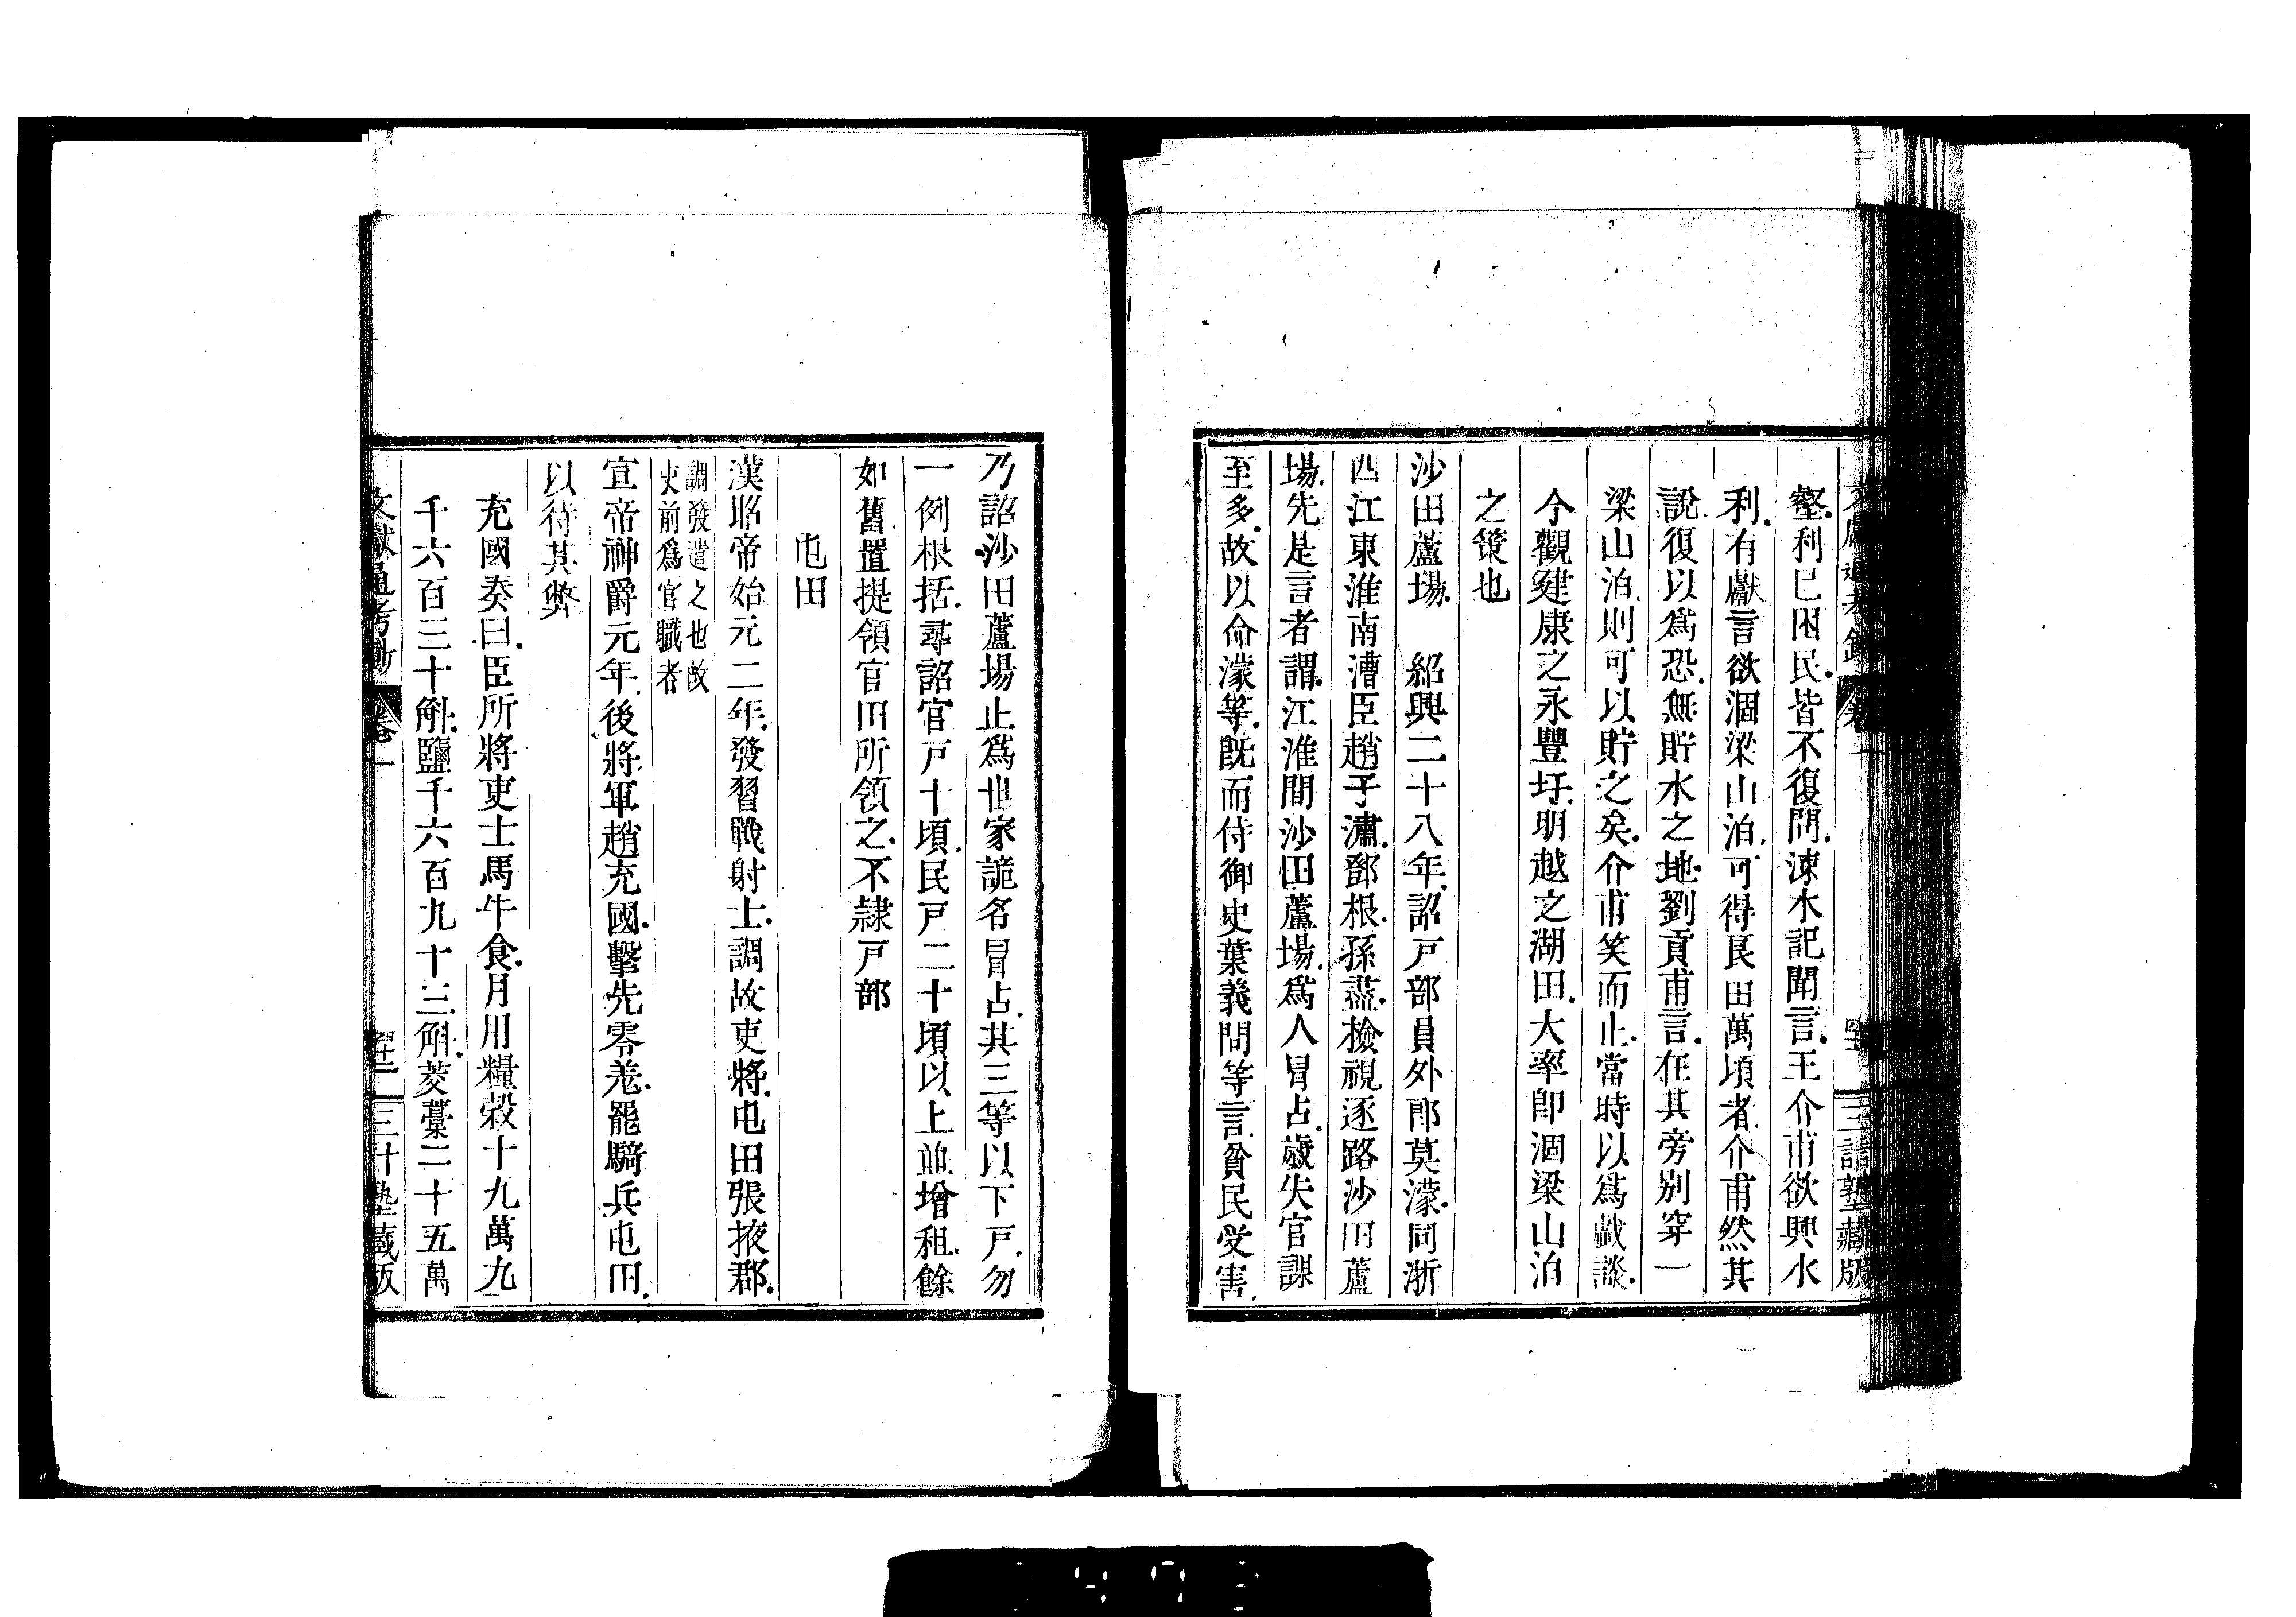 壑利已困民皆不復問涑水記聞言王介甫欲興水
利有獻言欲涸梁山泊可得良田萬頃者介甫然其
說復以爲恐無貯水之地劉貢甫言在其旁別穿一
梁山泊則可以貯之矣介甫笑而止當時以爲戲談
今觀建康之永豐圩明越之湖田大率卽涸梁山泊
之策也
沙田蘆場　紹興二十八年詔戸部員外郎莫濛同浙
西江東淮南漕臣趙子潚鄧根孫藎檢視逐路沙田蘆
場先是言者謂江淮間沙田蘆場爲人冒占歲失官課
至多故以命濛等旣而侍御史葉義問等言貧民受害
乃詔沙田蘆場止爲世家詭名冒占其三等以下戸勿
一例根括尋詔官戸十頃民戸二十頃以上並增租餘
如舊置提領官田所領之不隷戸部
屯田
漢昭帝始元二年發習戰射士調故吏將屯田張掖郡
調發遣之也故
吏前爲官職者
宣帝神爵元年後將軍趙充國擊先零羌罷騎兵屯田
以待其弊
充國奏曰臣所將吏士馬牛食月用糧穀十九萬九
千六百三十斛鹽千六百九十三斛茭藁二十五萬
文獻通考 卷一